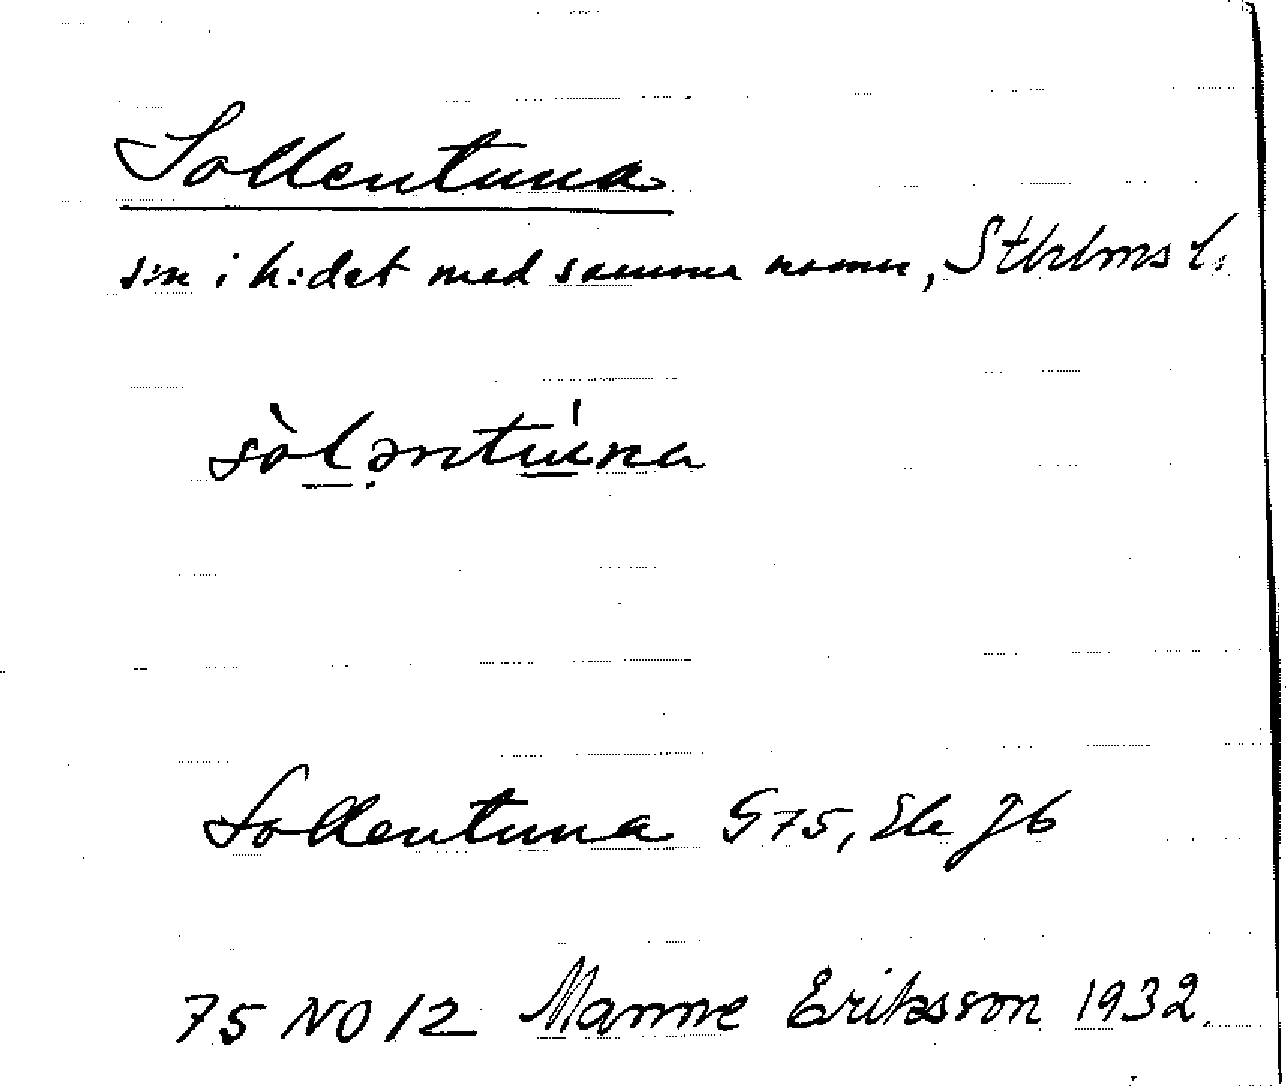 Sollentuna
s:n i h:det med samma namn, Sthlms l.
sòl̠ǝntú̠na
Sollentuna G75, Ele Jb
75 NO 12 Manne Eriksson 1932.